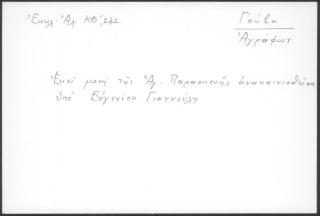 Ἐκκλ. Ἀλ ΚΘ', 232
Γούβα
Ἀγράφων
Ἐκεῖ μονή τῆς Ἁγ. Παρασκευῆς ἀνακαινισθεῖσα
ὑπό Εὐγενίου Γιαννούλη